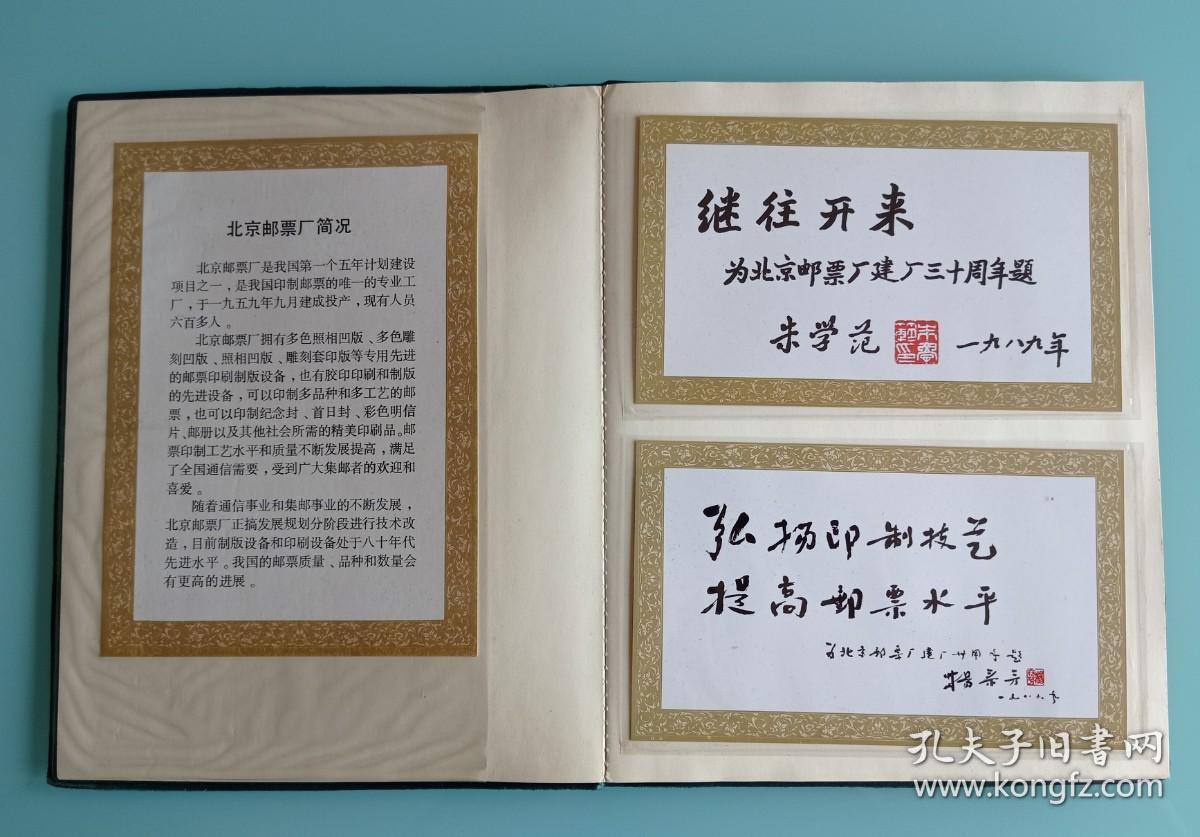 北京邮票厂简况
北京邮票厂是我国第一个五年计划建设
项目之一，是我国印制邮票的唯一的专业工
厂，于一九五九年九月建成投产，现有人员
六百多人。
北京邮票厂拥有多色照相凹版、多色雕
刻凹版、照相凹版、雕刻套印版等专用先进
的邮票印刷制版设备，也有胶印印刷和制版
的先进设备，可以印制多品种和多工艺的邮
票，也可以印制纪念封、首日封、彩色明信
片、邮册以及其他社会所需的精美印刷品。邮
票印制工艺水平和质量不断发展提高，满足
了全国通信需要，受到广大集邮者的欢迎和
喜爱。
随着通信事业和集邮事业的不断发展，
北京邮票厂正搞发展规划分阶段进行技术改
造，目前制版设备和印刷设备处于八十年代
先进水平。我国的邮票质量、品种和数量会
有更高的进展。
继往开来
为北京邮票厂建厂三十周年题
朱学范 一九八九年
弘扬印制技艺
提高邮票水平
为北京邮票厂建厂卅周年题
杨泰芳
一九八九年
孔夫子旧书网
www.kongfz.com